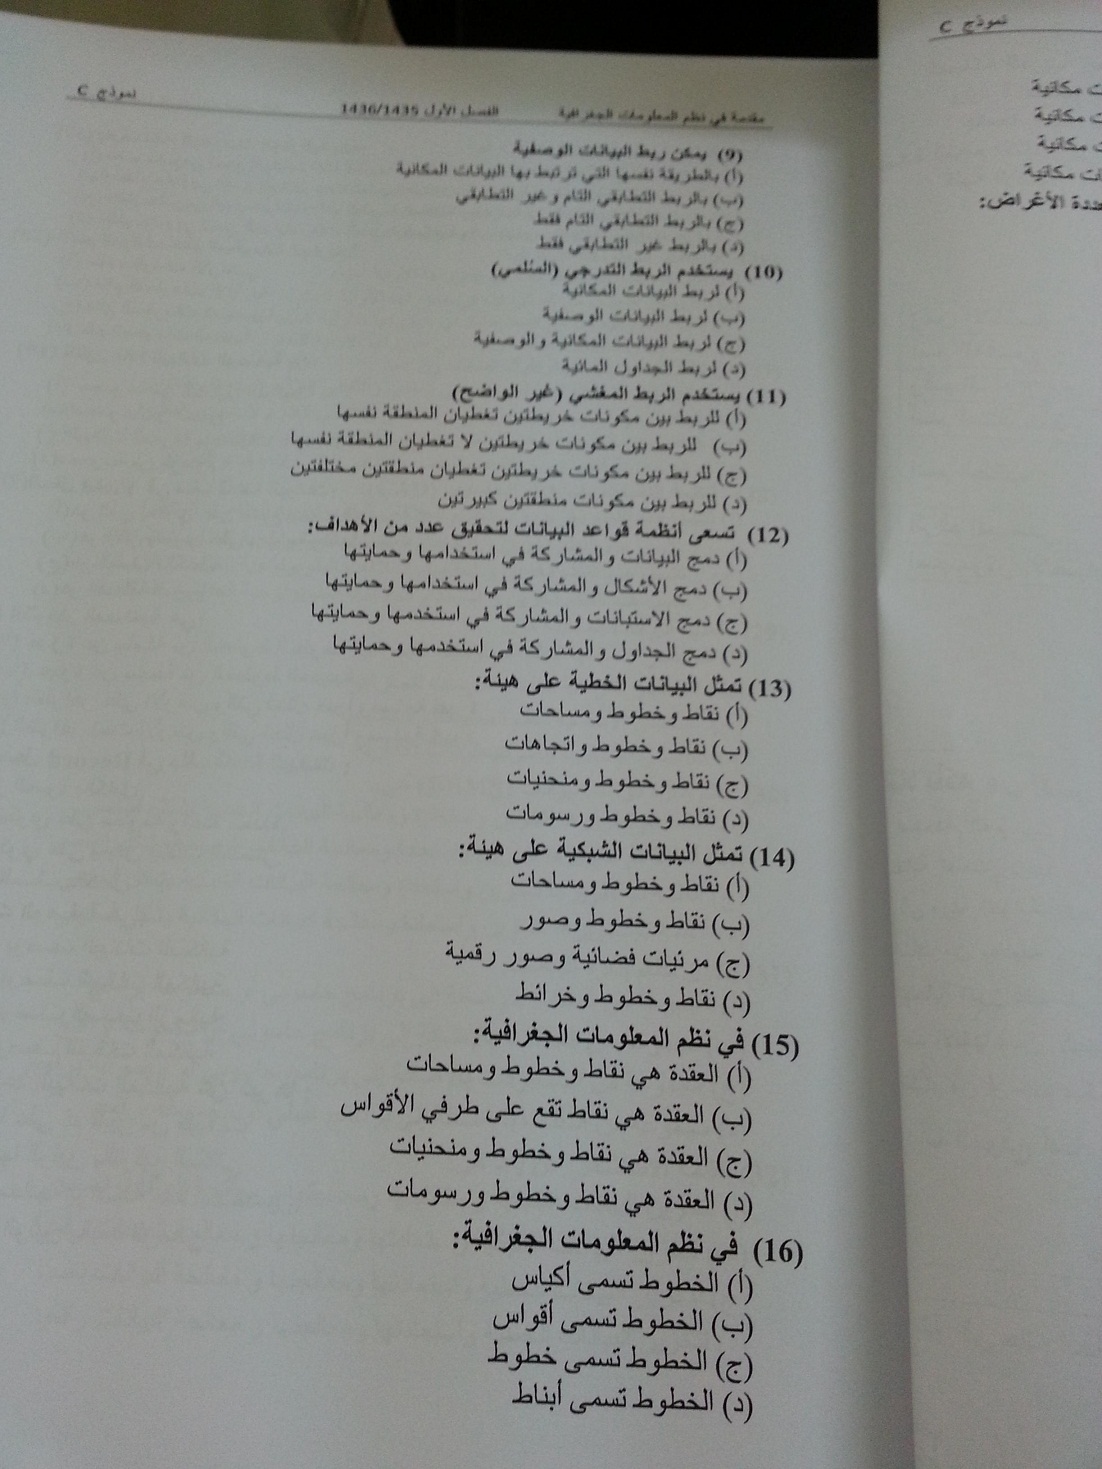 مقدمة في نظم المعلومات الجغرافية الفصل الأول 1436/1435 نموذج C
(9) يمكن ربط البيانات الوصفية
(أ) بالطريقة نفسها التي ترتبط بها البيانات المكانية
(ب) بالربط التطابقي التام وغير التطابقي
(ج) بالربط التطابقي التام فقط
(د) بالربط غير التطابقي فقط
(10) يستخدم الربط التدرجي (السُلمي)
(أ) لربط البيانات المكانية
(ب) لربط البيانات الوصفية
(ج) لربط البيانات المكانية والوصفية
(د) لربط الجداول المائية
(11) يستخدم الربط المغشي (غير الواضح)
(أ) للربط بين مكونات خريطتين تغطيان المنطقة نفسها
(ب) للربط بين مكونات خريطتين لا تغطيان المنطقة نفسها
(ج) للربط بين مكونات خريطتين تغطيان منطقتين مختلفتين
(د) للربط بين مكونات منطقتين كبيرتين
(12) تسعى أنظمة قواعد البيانات لتحقيق عدد من الأهداف:
(أ) دمج البيانات والمشاركة في استخدامها وحمايتها
(ب) دمج الأشكال والمشاركة في استخدامها وحمايتها
(ج) دمج الاستبانات والمشاركة في استخدمها وحمايتها
(د) دمج الجداول والمشاركة في استخدمها وحمايتها
(13) تمثل البيانات الخطية على هيئة:
(أ) نقاط وخطوط ومساحات
(ب) نقاط وخطوط واتجاهات
(ج) نقاط وخطوط ومنحنيات
(د) نقاط وخطوط ورسومات
(14) تمثل البيانات الشبكية على هيئة:
(أ) نقاط وخطوط ومساحات
(ب) نقاط وخطوط وصور
(ج) مرئيات فضائية وصور رقمية
(د) نقاط وخطوط وخرائط
(15) في نظم المعلومات الجغرافية:
(أ) العقدة هي نقاط وخطوط ومساحات
(ب) العقدة هي نقاط تقع على طرفي الأقواس
(ج) العقدة هي نقاط وخطوط ومنحنيات
(د) العقدة هي نقاط وخطوط ورسومات
(16) في نظم المعلومات الجغرافية:
(أ) الخطوط تسمى أكياس
(ب) الخطوط تسمى أقواس
(ج) الخطوط تسمى خطوط
(د) الخطوط تسمى أبناط
نموذج C
مكانية
مكانية
مكانية
مكانية
الأغراض: